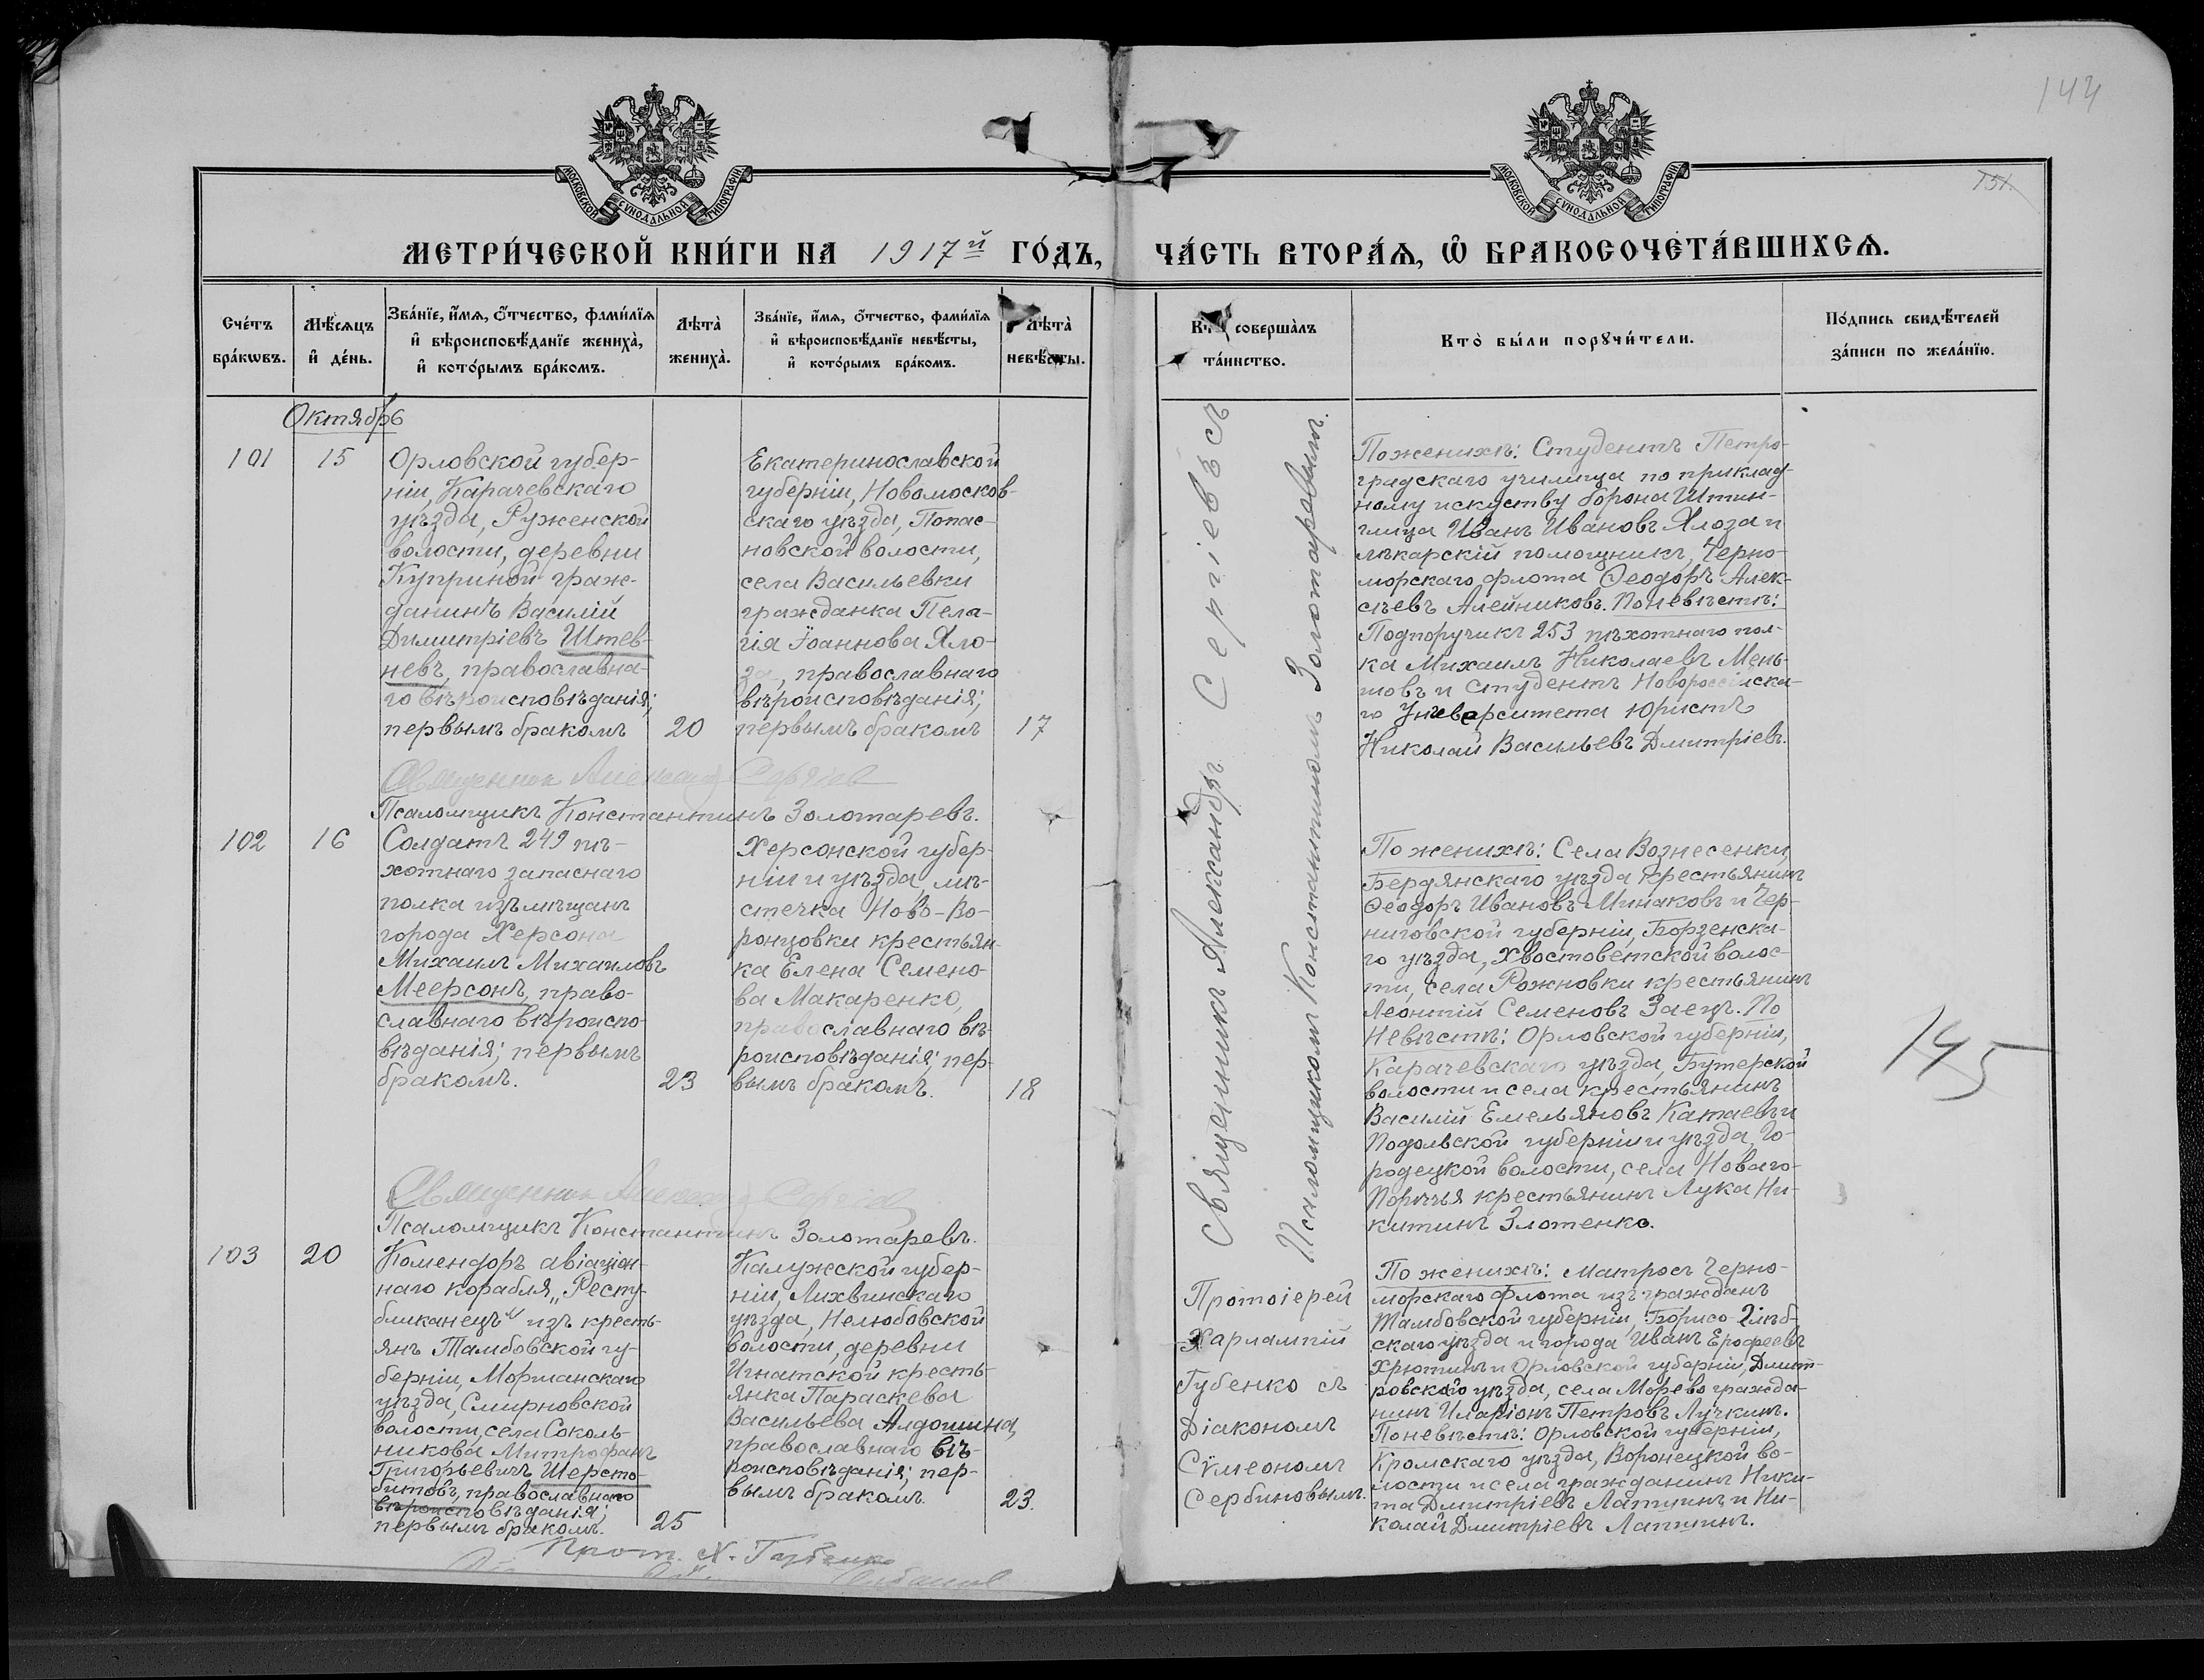 144
151.
МОСКОВСКОЙ СѴНОДАЛЬНОЙ ТИПОГРАФІИ
МОСКОВСКОЙ СѴНОДАЛЬНОЙ ТИПОГРАФІИ
МЕТРИ́ЧЕСКОЙ КНИ́ГИ НА 1917й ГО́ДЪ, ЧА́СТЬ ВТОРА́Ѧ, Ѽ БРАКОСОЧЕТА́ВШИХСѦ.
Сче́тъ
бра́кѡвъ.
Мѣ́сѧцъ
и҆ де́нь.
Зва́нїе, и҆́мѧ, ѻ҆́тчество, фами́лїѧ
и҆ вѣроисповѣ́данїе жениха̀,
и҆ кото́рымъ бра́комъ.
Лѣта̀
жениха̀.
Зва́нїе, и҆́мѧ, ѻ҆́тчество, фами́лїѧ
и҆ вѣроисповѣ́данїе невѣ́сты,
и҆ кото́рымъ бра́комъ.
Лѣта̀
невѣ́сты.
Кто̀ соверша̀лъ
та́инство.
Кто̀ бы́ли порꙋчи́тели.
По́дпись свидѣ́телей
за́писи по жела́нїю.
Октябрь
101
15
Орловской губер-
ніи, Карачевскаго
уѣзда, Руженской
волости, деревни
Куприной граж-
данинъ Василій
Димитріевъ Штев-
невъ, православна-
го вѣроисповѣданія;
первымъ бракомъ
20
Екатеринославской
губерніи, Новомосков-
скаго уѣзда, Попас-
новской волости,
села Васильевки
гражданка Пела-
гія Іоаннова Яло-
за, православнаго
вѣроисповѣданія;
первымъ бракомъ
17
Священникъ Александръ Сергіевъ
Псаломщикъ Константинъ Золотаревъ.
Священникъ Александръ Сергіевъ съ
Псаломщикомъ Константиномъ Золотаровымъ.
По женихѣ: Студентъ Петро-
градскаго училища по приклад-
ному искуству борона Штин-
глица Иванъ Ивановъ Ялоза и
лѣкарскій помощникъ, Черно-
морскаго флота Ѳеодоръ Алек-
сѣевъ Алейниковъ. По невѣстѣ:
Подпоручикъ 253 пѣхотнаго пол-
ка Михаилъ Николаевъ Мень-
шовъ и студентъ Новороссійска-
го Университета юристъ
Николай Васильевъ Дмитріевъ.
102
16
Солдатъ 249 пѣ-
хотнаго запаснаго
полка изъ мѣщанъ
города Херсона
Михаилъ Михаиловъ
Меерсонъ, право-
славнаго вѣроиспо-
вѣданія; первымъ
бракомъ.
23
Херсонской губер-
ніи и уѣзда, мѣ-
стечка Ново-Во-
ронцовки крестьян-
ка Елена Семено-
ва Макаренко,
православнаго вѣ-
роисповѣданія; пер-
вымъ бракомъ.
18
Священникъ Александръ Сергіевъ
Псаломщикъ Константинъ Золотаревъ.
По женихѣ: Села Вознесенки,
Бердянскаго уѣзда крестьянинъ
Ѳеодоръ Ивановъ Минаковъ и Чер-
ниговской губерніи, Борзенска-
го уѣзда, Хвостоветской волос-
ти, села Рожновки крестьянинъ
Леонтій Семеновъ Заецъ. По
Невѣстѣ: Орловской губерніи,
Карачевскаго уѣзда, Бутерской
волости и села крестьянинъ
Василій Емельяновъ Катаевъ и
Подольской губерніи и уѣзда, Го-
родецкой волости, села Новаго-
Порѣчья крестьянинъ Лука Ни-
китинъ Злотенко.
145
103
20
Комендоръ авіаціон-
наго корабля „Респу-
бликанецъ" изъ кресть-
янъ Тамбовской гу-
берніи, Моршанскаго
уѣзда, Смирновской
волости, села Соколь-
никова Митрофанъ
Григорьевичъ Шерсто-
битовъ, православнаго
вѣроисповѣданія;
первымъ бракомъ.
25
Калужской губер-
ніи, Лихвинскаго
уѣзда, Нелюбовской
волости, деревни
Игнатской кресть-
янка Параскева
Васильева Алдошина,
православнаго вѣ-
роисповѣданія; пер-
вымъ бракомъ.
23.
Протоіерей
Харлампій
Губенко съ
Діакономъ
Сѵмеономъ
Сербиновымъ.
По женихѣ: Матросъ Черно-
морскаго флота изъ гражданъ
Тамбовской губерніи, Борисо-Глѣб-
скаго уѣзда и города Иванъ Ерофеевъ
Хрютинъ и Орловской губерніи, Дмит-
ровскаго уѣзда, села Морево гражда-
нинъ Иларіонъ Петровъ Лучкинъ.
По невѣстѣ: Орловской губерніи,
Кромскаго уѣзда, Воронецкой во-
лости и села гражданинъ Ники-
та Дмитріевъ Лапшинъ и Ни-
колай Дмитріевъ Лапшинъ.
Прот. Х. Губенко